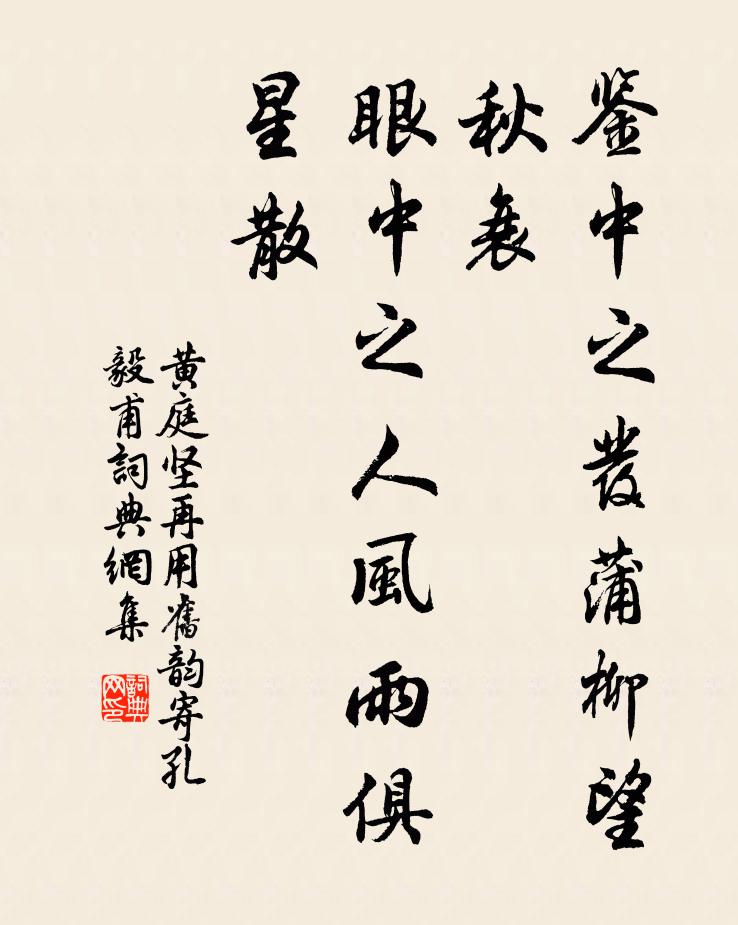 鉴中之發蒲柳望
秋衰
眼中之人風雨俱
星散
黄庭坚再用舊韵寄孔
毅甫詞典網集
詞典网印